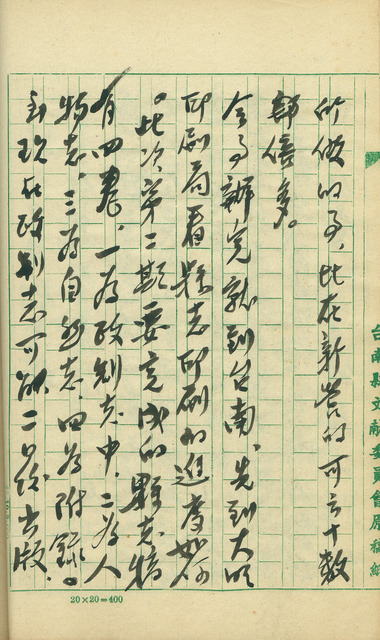 台南縣文献委員會原稿紙
所做的事,比在新營的可云十數
倍多。
公事辦完就到台南、先到大明
印刷局看縣志印刷的進度如何
。此次第二期要完成的縣志稿
有四卷,一為政制志中,二為人
物志,三為自然志,四為附錄。
到現在政制志可能二出版.
20×20=400